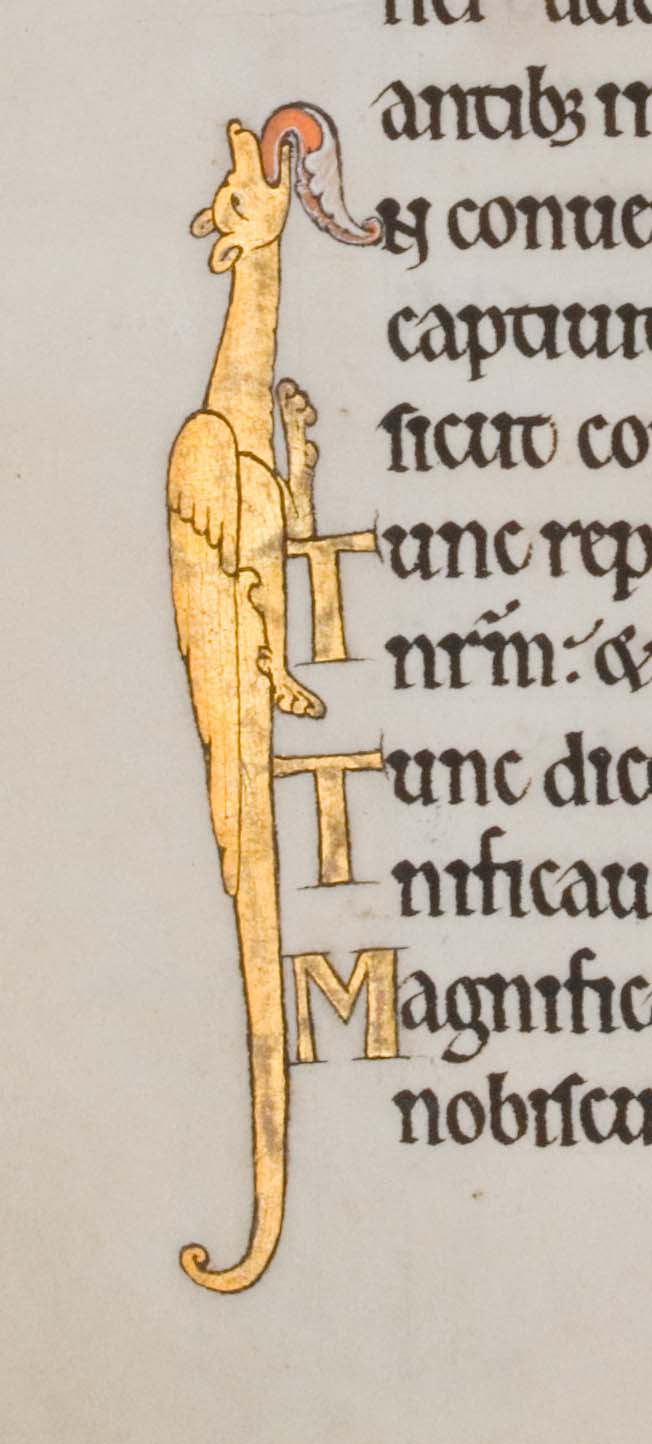 antibꝫ in
IN conue
captiuit
sicut co
Tunc rep
nrm̄: &
Tunc dice
nificau
Magnific
nobiscu